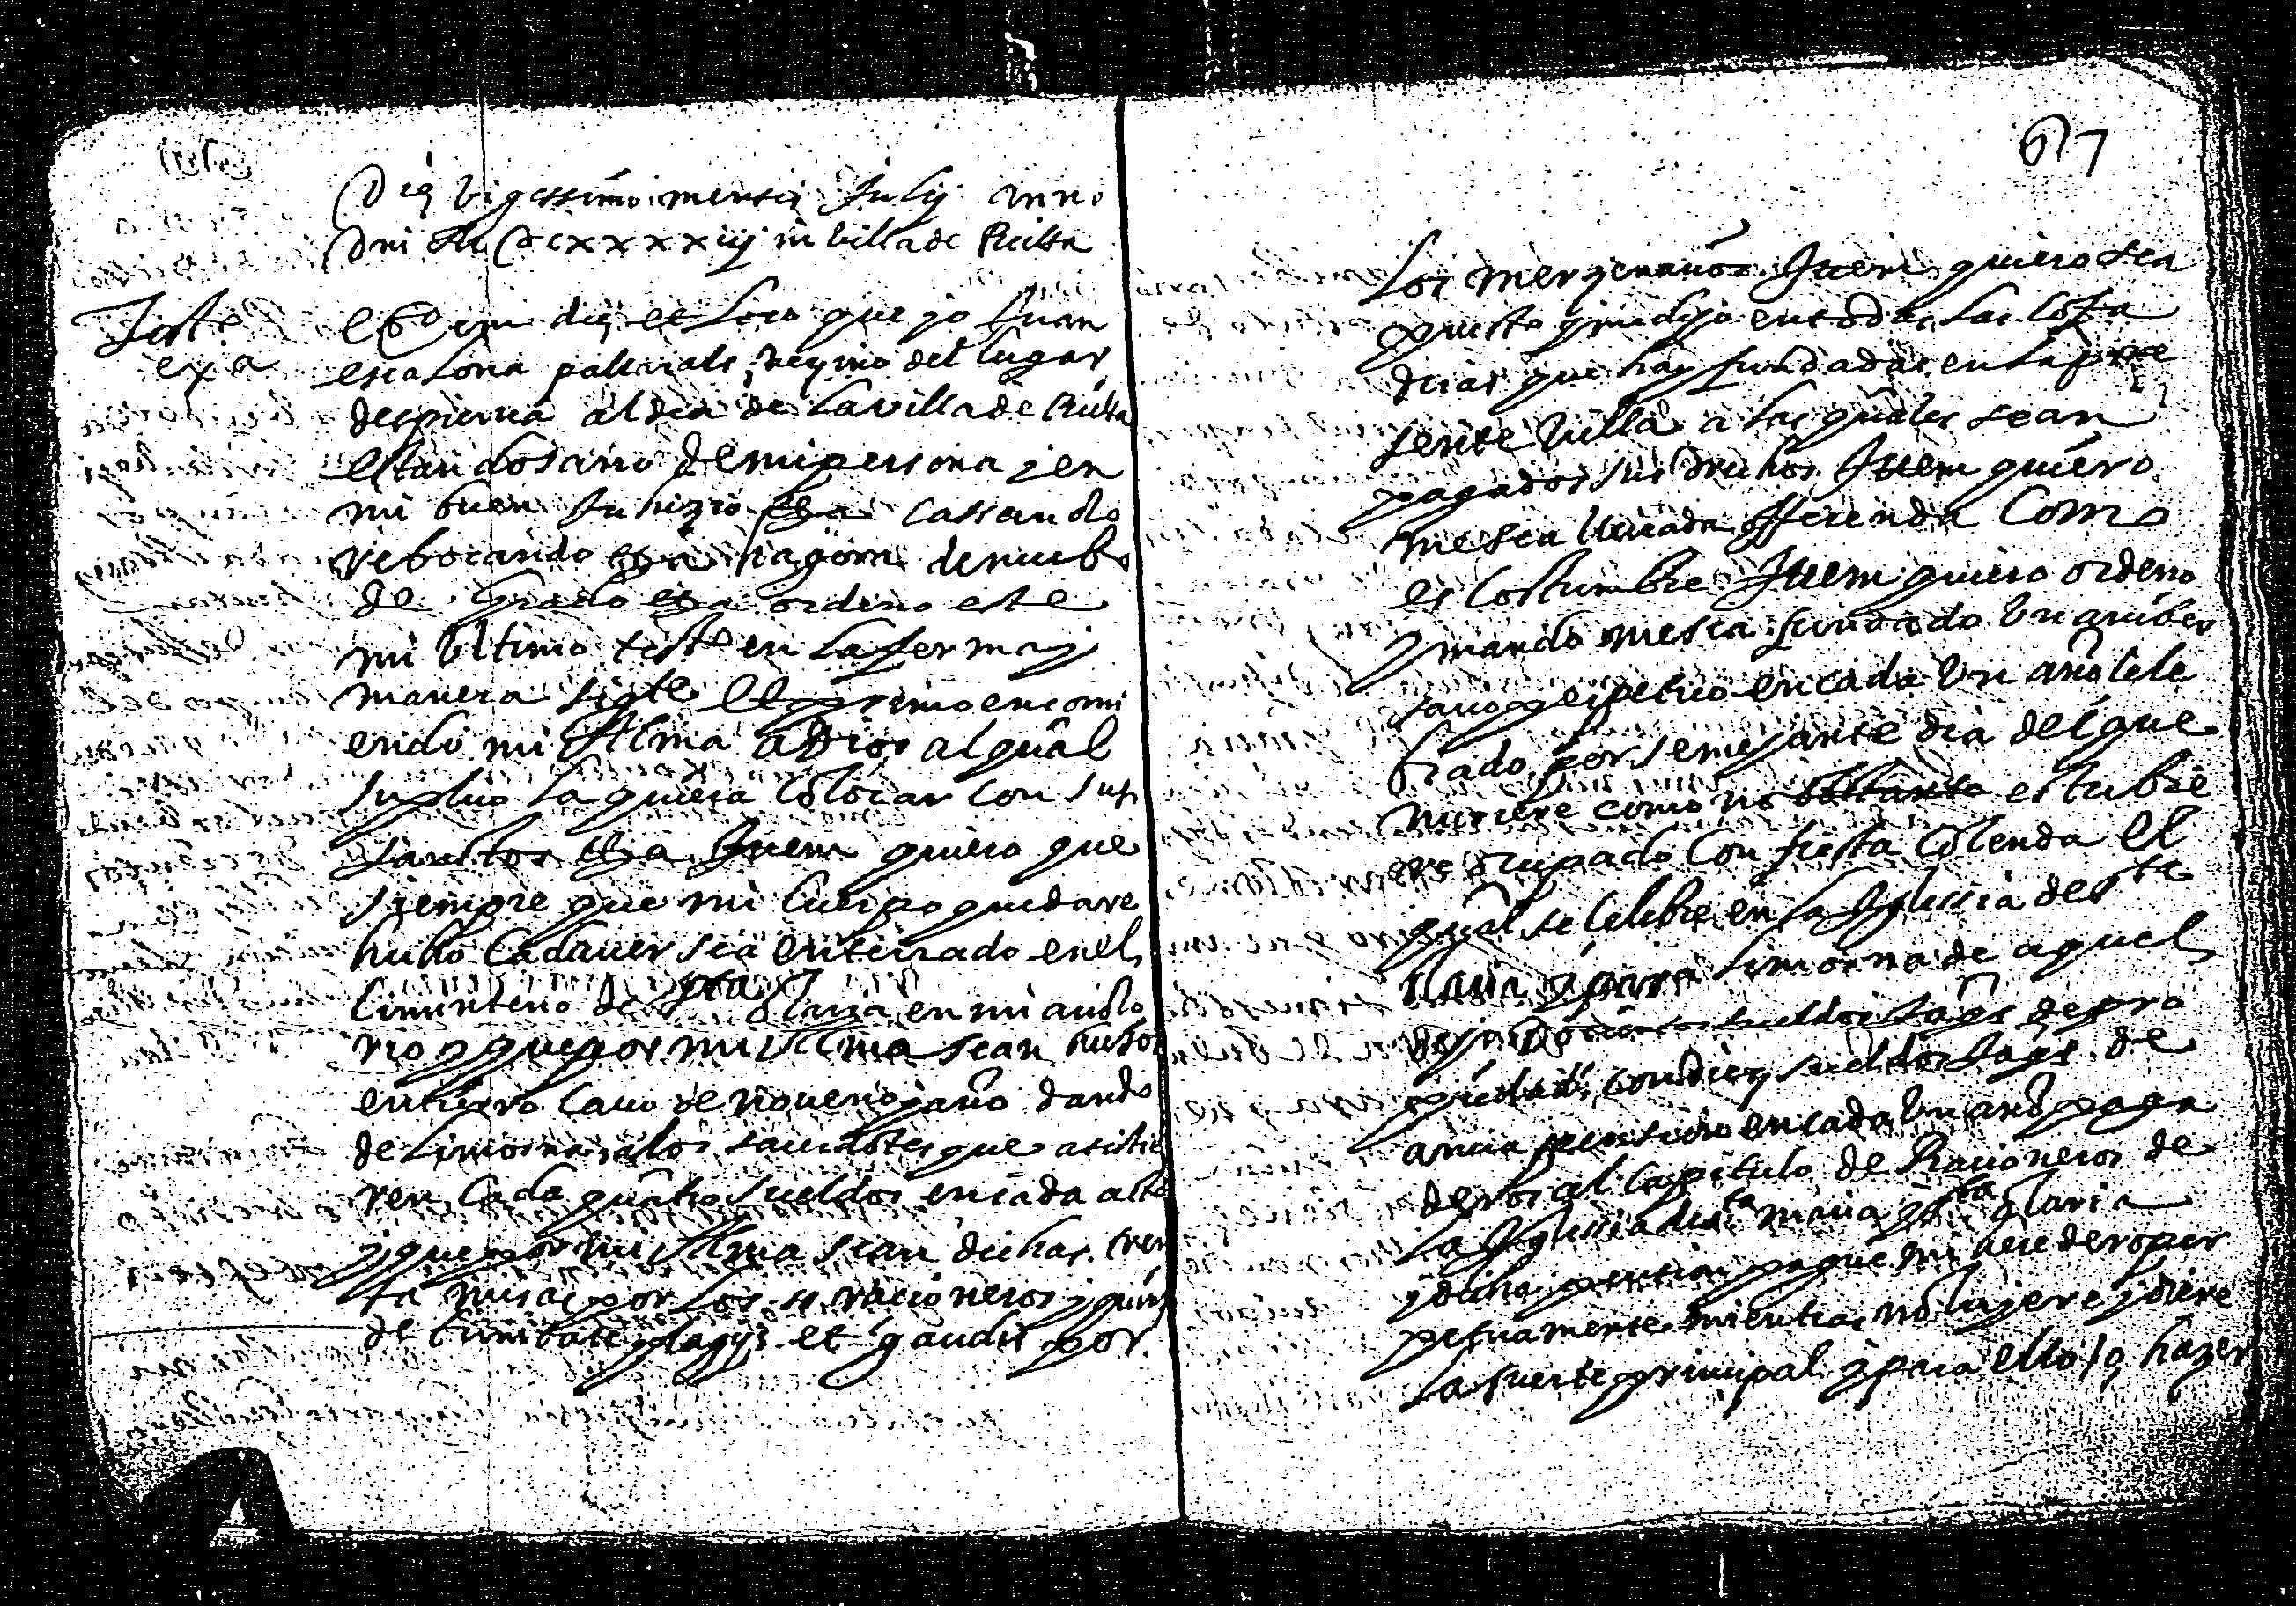 Die bigessimo mensis Julij anno
Dni M DCxxxxiij in billa de Ruilla
Testo
exa
eodem die et loco que jo Juan
escalona vezino del lugar
aldea de la villa de Ruilla
estando sano de mi persona j en
mi buen Juhizio exa cassando
rebocando exa hagora de nuebo
de grado exa ordeno este
mi ultimo testo en la forma j
manera sigte et primo encomi
endo mi Alma a Dios al qual
suplico la quiera colocar con sus
sanctos exa Item quiero que
siempre que mi Cuerpo quedare
hecho Cadaver sea enterrado en el
Ciminterio de Sta Maria en mi
y que por mi Alma sean hechos
entierro cavo de noveno j año dando
de limosna a los sacerdotes que asistie
ren cada quatro sueldos en cada acto
j que por mi Alma sean dichas tren
ta misas por los ss. racioneros j
de Civitate plagis et gaudis por
67
los mergenarios Item quiero sea
puesto en todas las cofa
drias que hay fundadas en la pre
sente villa a las quales sean
pagados sus drechos Item quiero
me sea llevada offrenda Como
es costumbre Item quiero ordeno
y mando me sea fundado un aniber
sario perpetuo en cada un año cele
brado por semejante dia del que
muriere como no obstante estubie
re ocupado con fiesta colenda el
qual se celebre en la Iglessia de Sta
Maria y para limosna de aquel
dejo docientos sueldos Jaqs de pro
piedad con diez sueldos Jaqs de
annua pension en cada un año paga
deros al Capitulo de Racioneros de
la Iglessia de Sta maria
j dicha pension pague mi heredero per
petuamente mientras no lujere j diere
la suerte principal j para ello lo hazer